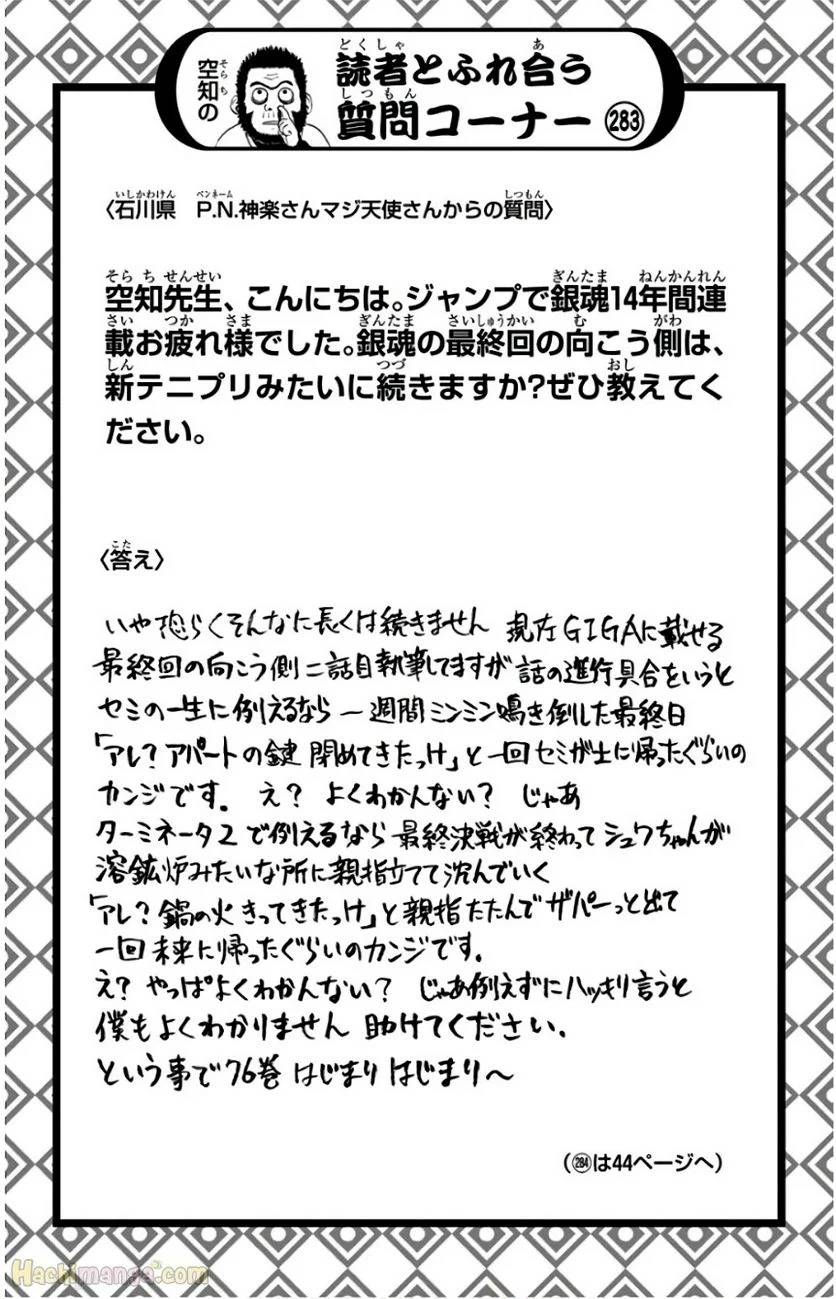 空知の
読者とふれ合う
質問コーナー㉘㉓
〈石川県　P.N.神楽さんマジ天使さんからの質問〉
空知先生、こんにちは。ジャンプで銀魂14年間連
載お疲れ様でした。銀魂の最終回の向こう側は、
新テニプリみたいに続きますか?ぜひ教えてく
ださい。
〈答え〉
いや恐らくそんなに長くは続きません 現在GIGAに載せる
最終回の向こう側二話目執筆してますが話の進行具合をいうと
セミの一生に例えるなら一週間ミンミン鳴き倒した最終日
「アレ?アパートの鍵閉めてきたっけ」と一回セミが土に帰ったぐらいの
カンジです。え? よくわかんない? じゃあ
ターミネータ2で例えるなら最終決戦が終わってシュワちゃんが
溶鉱炉みたいな所に親指立てて沈んでいく
「アレ?鍋の火きってきたっけ」と親指たたんでザパーっと出て
一回未来に帰ったぐらいのカンジです。
え? やっぱよくわかんない? じゃあ例えずにハッキリ言うと
僕もよくわかりません 助けてください.
という事で76巻 はじまりはじまり〜
(284は44ページへ)
Hachimanga.com